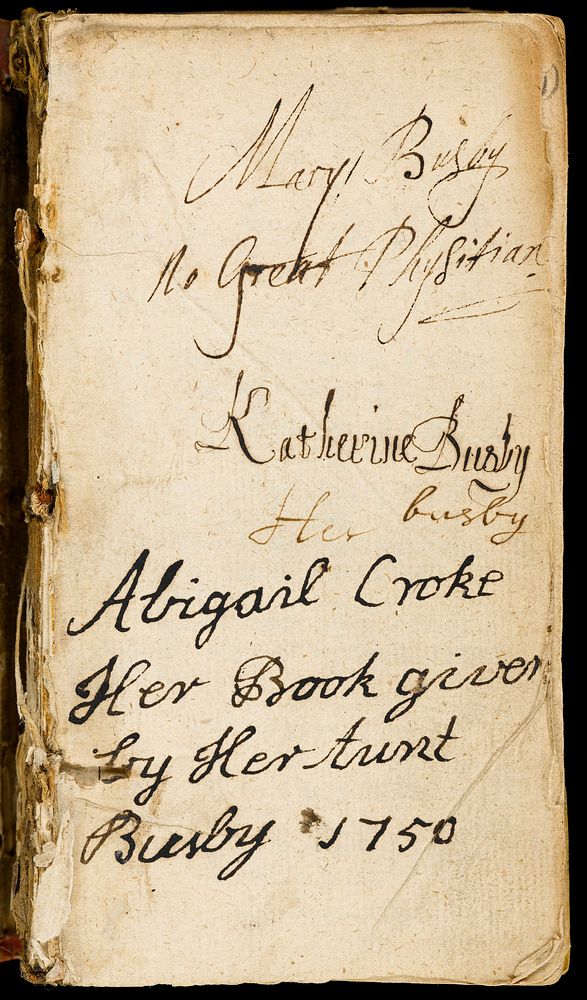 Mary Busby
no Great Physitian
Katherine Busby
Her busby
Abigail Croke
Her Book given
by Her Aunt
Busby 1750